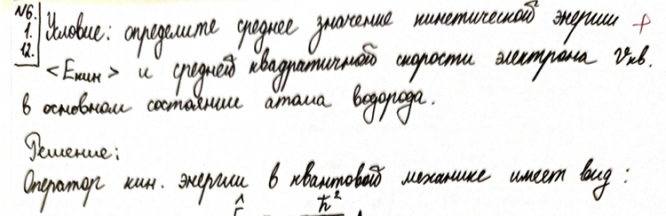 №6.
1.
12.
Условие: определите среднее значение кинетической энергии +
<Eкин> и средней квадратичной скорости электрона vкв.
в основном состоянии атома водорода.
Решение:
Оператор кин. энергии в квантовой механике имеет вид:
ħ²